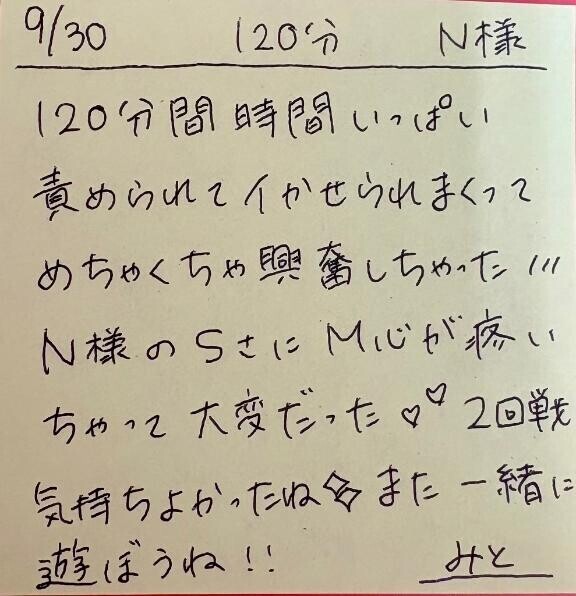 9/30 120分 N様
120分間時間いっぱい
責められてイかせられまくって
めちゃくちゃ興奮しちゃった///
N様のSさにM心が疼い
ちゃって大変だった♡♡2回戦
気持ちよかったねまた一緒に
遊ぼうね!! みと